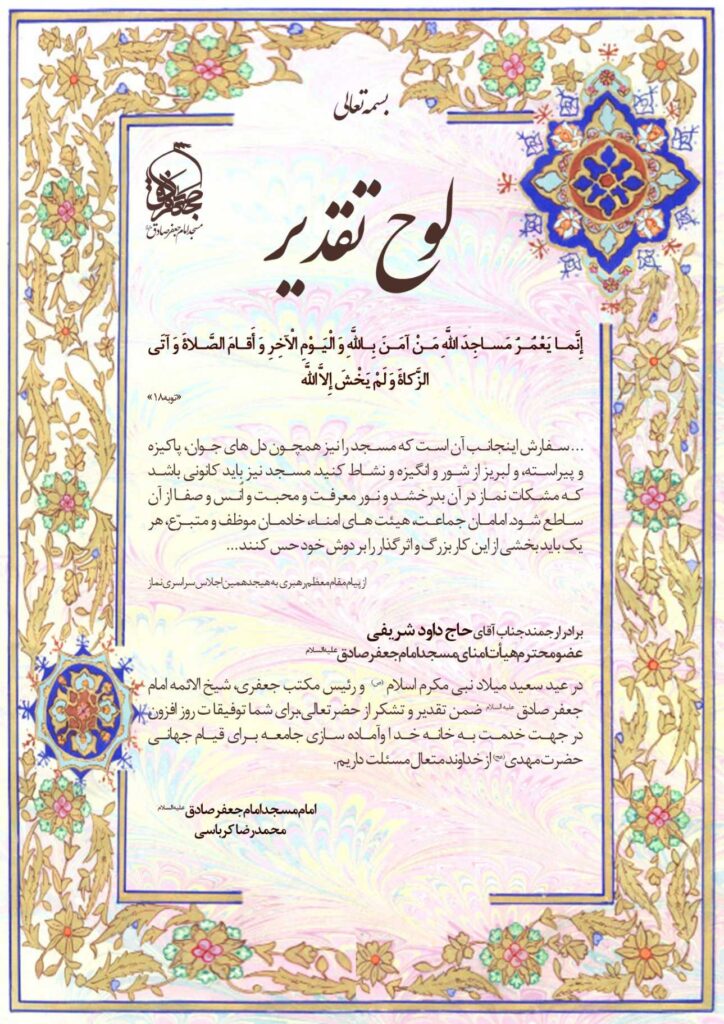 بسمه تعالی
مسجد امام جعفر صادق
لوح تقدیر
إِنَّما يَعْمُرُ مَساجِدَ اللَّهِ مَنْ آمَنَ بِاللَّهِ وَ الْيَوْمِ الْآخِرِ وَ أَقامَ الصَّلاةَ وَ آتَى
الزَّكاةَ وَ لَمْ يَخْشَ إِلاَّ اللَّهَ
«توبه۱۸»
...سفارش اینجانب آن است که مسجد را نیز همچون دل های جوان، پاکیزه
و پیراسته، و لبریز از شور و انگیزه و نشاط کنید. مسجد نیز باید کانونی باشد
که مشکات نماز در آن بدرخشد و نور معرفت و محبت و انس و صفا از آن
ساطع شود. امامان جماعت، هیئت های امناء، خادمان موظف و متبرّع، هر
یک باید بخشی از این کار بزرگ و اثر گذار را بر دوش خود حس کنند...
از پیام مقام معظم رهبری به هیجدهمین اجلاس سراسری نماز
برادر ارجمند جناب آقای حاج داود شریفی
عضو محترم هیأت امنای مسجد امام جعفر صادق علیه السلام
در عید سعید میلاد نبی مکرم اسلام (ص) و رئیس مکتب جعفری، شیخ الائمه امام
جعفر صادق علیه السلام ضمن تقدیر و تشکر از حضرتعالی،برای شما توفیقات روز افزون
در جهت خدمت به خانه خدا وآماده سازی جامعه برای قیام جهانی
حضرت مهدی (عج) از خداوند متعال مسئلت داریم.
امام مسجد امام جعفر صادق علیه السلام
محمدرضا کرباسی